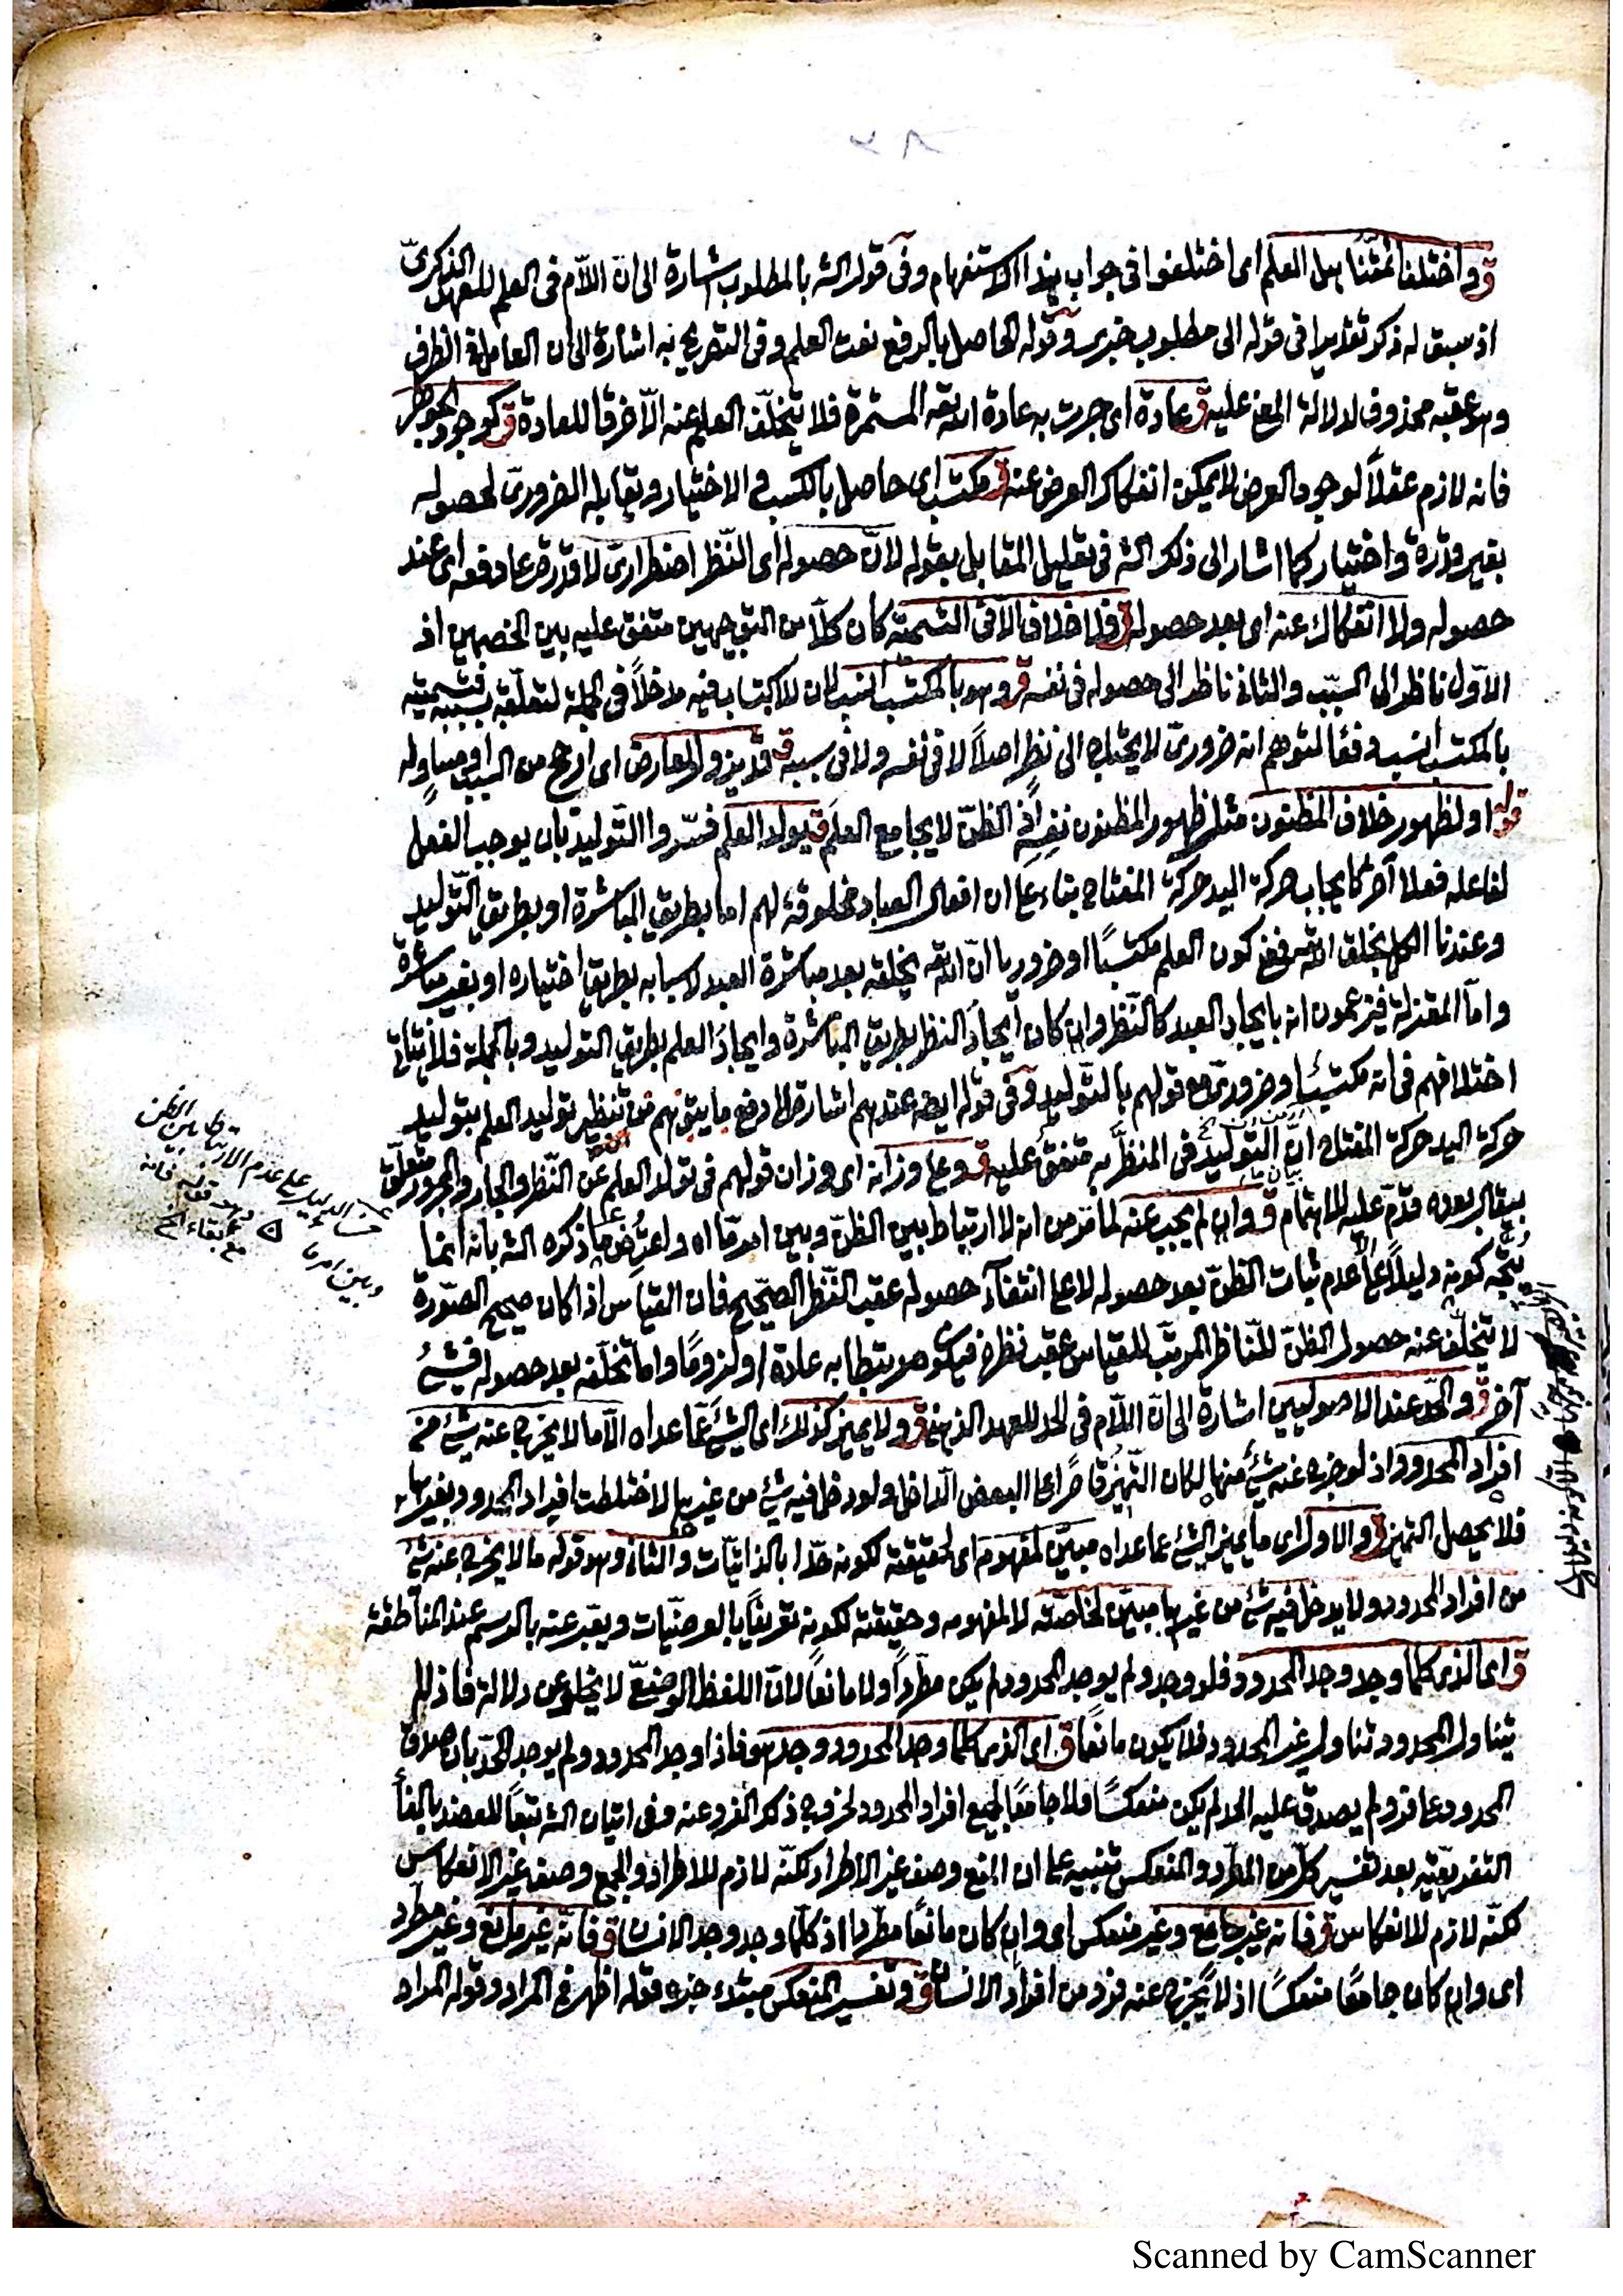 ٢٨
ق واختلف ائمتنا هل العلم اى اختلفوا فى جواب هذا الاستفهام وفى قول الشه بالمطلوب اشارة الى انّ اللاّم فى العلم للعهد الذكرىّ
اذ سبق له ذكر تقديرا فى قوله الى مطلوب خبرى وقوله الحاصل بالرفع نعت العلم وفى التصريح به اشارة الى ان العامل فى الظرف
وهو عقبه محذوف لدلالة المعنى عليه ق عادة اى جرت به عادة الله تعه المستمرة فلا يتخلّف العلم عنه الاّ خرقا للعادة ق كوجود الجوهر
فانه لازم عقلاً لوجود العرض لا يمكن انفكاك العرض عنه ق مكتسب اى حاصل بالكسب والاختيار ويقابله الضرورىّ لحصوله
بغير قدرة واختيار كما اشار الى ذلك الشه فى تعليل المقابل بقوله لانّ حصوله اى النّظر اضطرارىّ لا قدرة على دفعه اى عند
حصوله ولا انفكاك عنه اى بعد حصوله ق فلا خلاف الاّ فى التسمية كان كلاّ من التوجيهين متفق عليه بين الخصمين اذ
الاوّل ناظر الى السبب والثانى ناظر الى حصوله فى نفسه ق وهو بالمكتسب انسب لان للاكتساب فيه مدخلاً فى الجملة لتعلّقه بسببه فتسميته
بالمكتسب انسب دفعًا لتوهم انه ضرورىّ لا يحتاج الى نظرٍ اصلاً لا فى نفسه ولا فى سببه ق قد يزول لمعارض اى ارجح من السبب او مساوٍ له
قوله او لظهور خلاف المظنون مثله ظهور المظنون نفسِه اذ الظنّ لا يجامع العلمَ ق يولد العلم فسّروا التّوليد بان يوجب الفعل
لفاعله فعلا آخر كايجاب حركة اليد حركة المفتاح بناء على ان افعال العباد مخلوقة لهم اما بطريق المباشرة او بطريق التّوليد
وعندنا الكل بخلق الله تعه فمعنى كون العلم مكتسبًا او ضروريا انّ الله تعه يخلقه بعد مباشرة العبد لاسبابه بطريق اختياره او بغير مباشرة
وامّا المعتزلة فيزعمون انه بايجاد العبد كالنّظر وان كان ايجادُ النظر بطريق المباشرة وايجادُ العلم بطريق التوليد وبالجملة فلا يتأتى
اختلافهم فى انه مكتسبٌ او ضرورىّ مع قولهم بالتّوليد وفى قوله ايضه عندهم اشارة الى دفع ما يتوهم من تنظير توليد العلم بتوليد
حركة اليد حركة المفتاح انّ التّوليد فى المنظَّر به متفق عليه ق وعلى وزانه اى وزان قولهم فى تولد العلم عن النّظر والجار والمجرور متعلّق
بيقال بعده قدّم عليه للاهتمام ق وان لم يجب عنه لما مرّ من انه لا ارتباط بين الظنّ وبين امرٍ مّا اه واعتُرِض على ما ذكره الشه بانه انما
يتّجه كونه دليلاً على عدم ثبات الظنّ بعد حصوله لا على انتفاء حصوله عقب النّظر الصّحيح فان القياس اذا كان صحيح الصّورة
لا يتخلّف عنه حصول الظنّ للنّاظر المرتب للقياس عقب نظره فيكون مرتبطا به عادة او لزومًا واما تخلّفه بعد حصوله فشئٌ
آخر ق والحدّ عند الاصوليين اشارة الى انّ اللاّم فى الحد للعهد الذهنى ق ولا يميز كذلك اى الشئَ عمّا عداه الاّ ما لا يخرج عنه شئ من
افراد المحدود اذ لو خرج عنه شئ منها لكان التميّز قاصرًا على البعض الدّاخل ولو دخل فيه شئ من غيرها لاختلطت افراد المحدود بغيرها
فلا يحصل التميز ق والاول اى ما يميز الشئ عما عداه مبيّن لمفهومه اى لحقيقته لكونه حدّا بالذاتيّات والثانى وهو قوله ما لا يخرج عنه شئ
من افراد المحدود ولا يدخل فيه شئ من غيرها مبيّن لخاصّته لا لمفهومه وحقيقته لكونه تعريفًا بالعرضيّات ويعبّر عنه بالرسم عند المناطقة
ق اى الذى كلما وجد وجد المحدود فلو وجد ولم يوجد المحدود لم يكن مطّردًا ولا مانعًا لانّ اللفظ الوضعىّ لا يخلو عن دلالة فاذا لم
يتناول المحدود تناول غير المحدود فلا يكون مانعًا ق اى الذى كلما وجد المحدود وجد هو فاذا وجد المحدود ولم يوجد الحدّ بان صدق
المحدود على فرد ولم يصدق عليه الحد لم يكن منعكسًا ولا جامعًا لجميع افراد المحدود لخروج ذكر الفرد عنه وفى اتيان الشه تبعًا للعضد بالفاء
التفريعيّة بعد تفسير كلّ من المطّرد والمنعكس تنبيه على ان المنع وصف غير الاطراد لكنّه لازم للاطراد والجمع وصف غير الانعكاس
لكنّه لازم للانعكاس ق فانه غير جامع وغير منعكس اى وان كان مانعًا مطّردا اذ كلّما وجد وجد الانسان ق فانّه غير مانع وغير مطّرد
اى وان كان جامعًا منعكسًا اذ لا يخرج عنه فرد من افراد الانسان ق وتفسير المنعكس مبتدء خبره قوله اظهر فى المراد وقوله المراد
Scanned by CamScanner